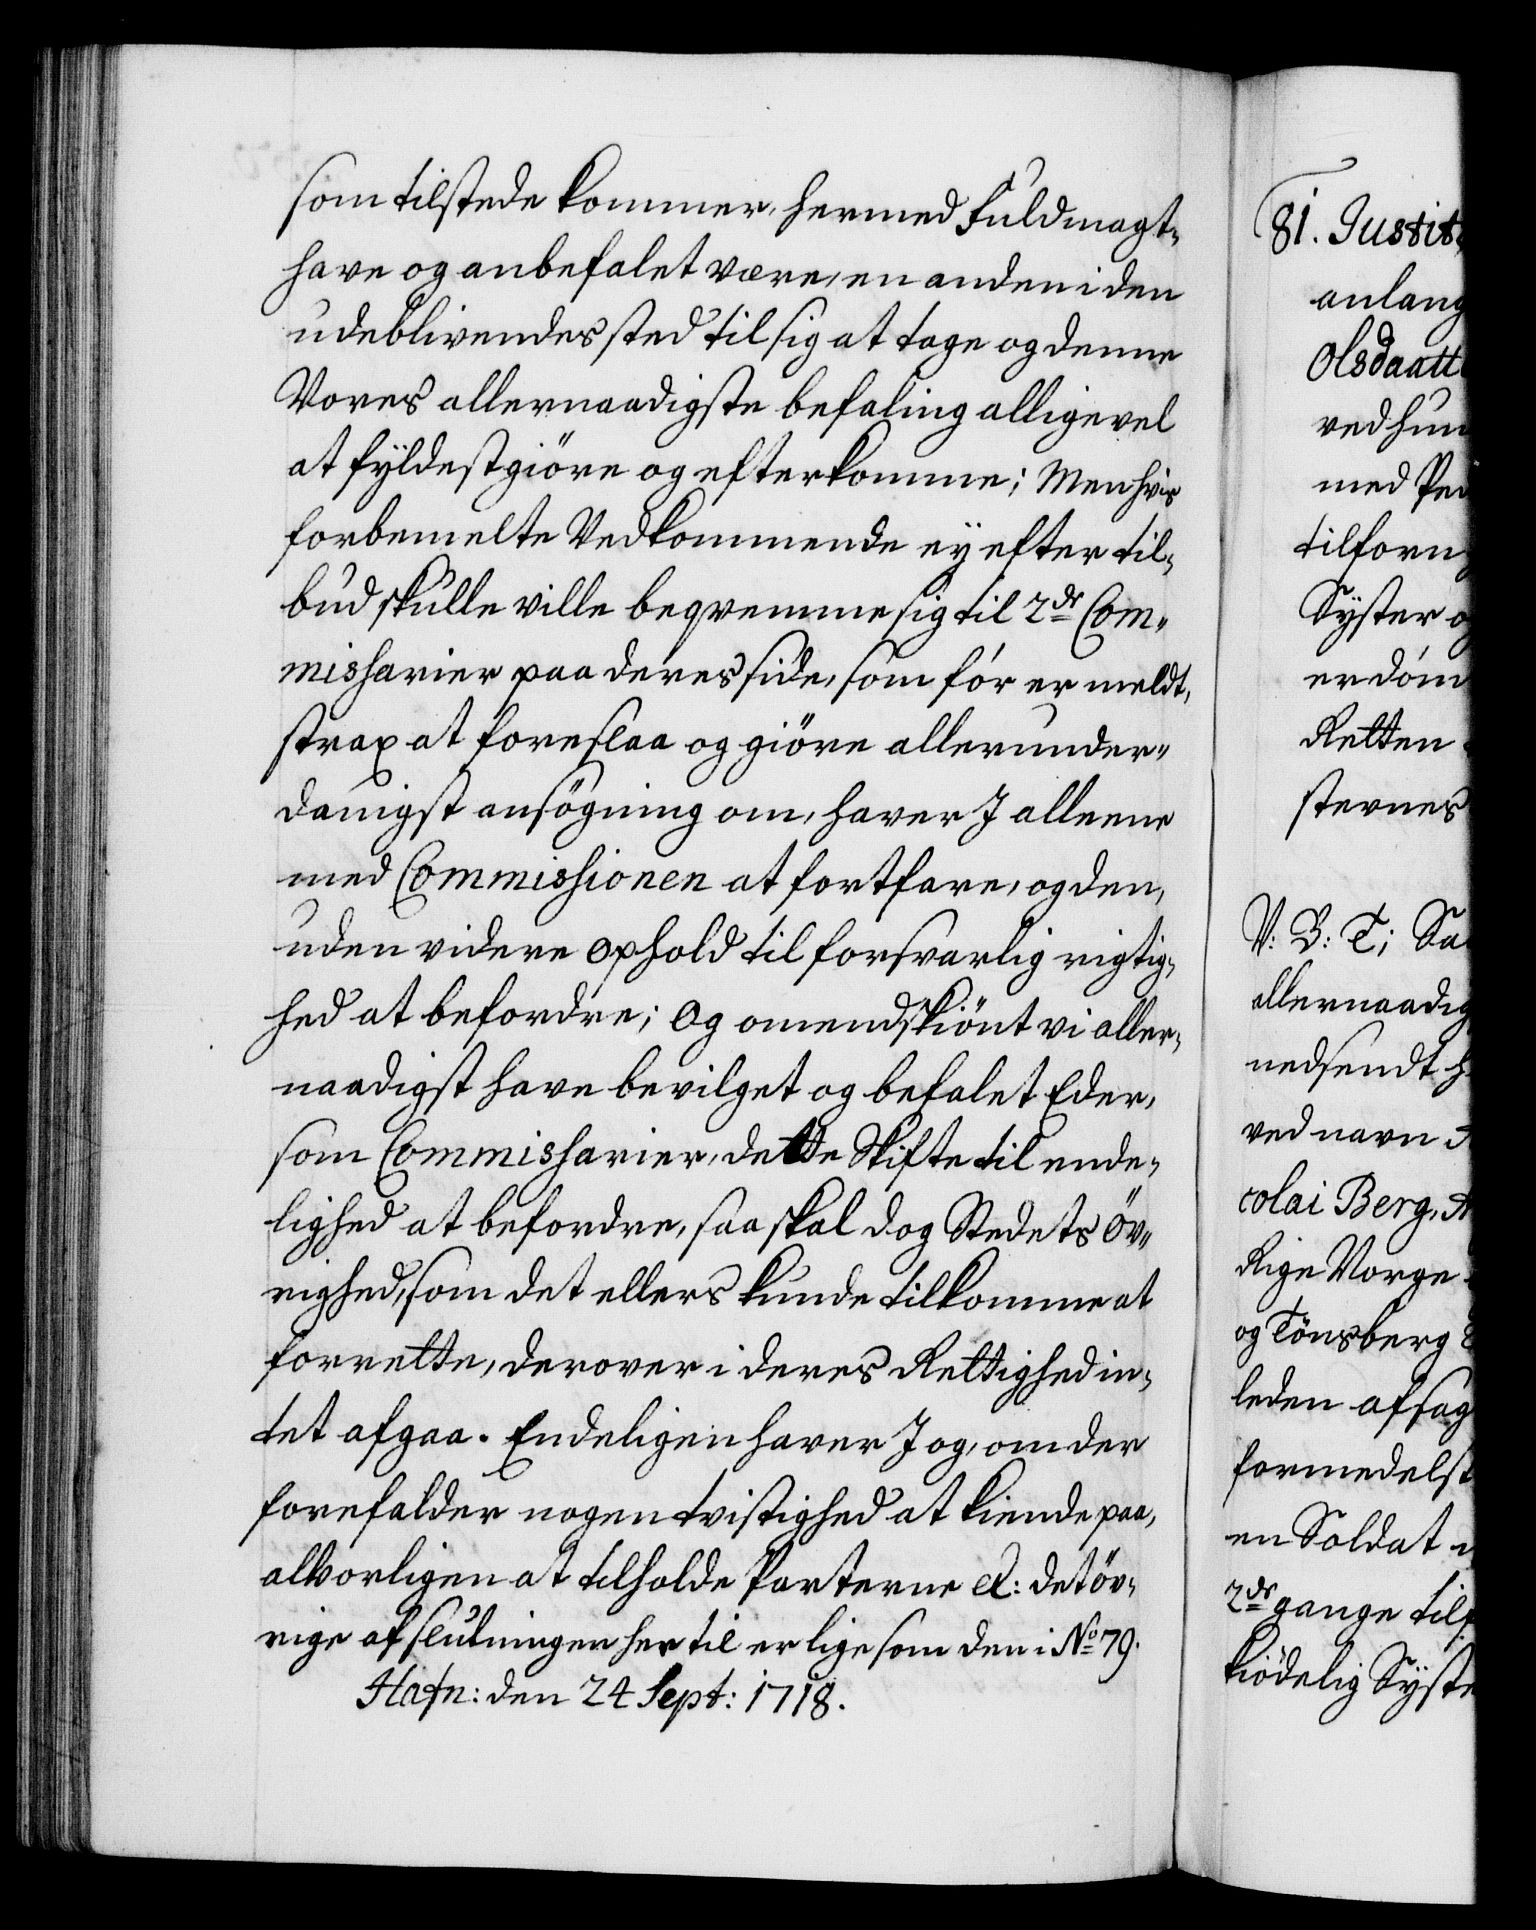 som tilstede kommer, hermed Fuldmagt
have og anbefalet være, en anden i den
udeblivendes sted til sig at tage og denne
Vores allernaadigste befaling alligevel
at fyldestgiöre og efterkomme; Men hvis
forbemelte Vedkommende ey efter til-
bud skulle ville beqvemme sig til 2de Com-
missarier paa deres side, som för er meldt,
strax at foreslaa og giöre allerunder-
danigst ansögning om, haver I alleene
med Commissionen at fortfare, og den,
uden videre ophold til forsvarlig rigtig-
hed at befordre; Og omendskiönt vi aller-
naadigst have bevilget og befalet Eder,
som Commissarier, dette Skifte til ende-
lighed at befordre, saa skal dog Stedets Öv-
righed, som det ellers kunde tilkomme at
forrette, derover i deres Rettighed in-
tet afgaa. Endeligen haver I og, om der
forefalder nogen tvistighed at kiende paa,
alvorligen at tilholde Parterne &: det öv-
rige af slutningen her til er lige som den i No 79.
Hafn: den 24 Sept: 1718.
81. Justit
anlang
Olsdaatt
ved hun
med Pe
tilforn
Syster o
er döm
Retten
stevnes
V: B: T; Sa
allernaadig
nedsendt h
ved navn
colai Berg, A
Rige Norge
og Tönsberg
leden afsag
formedelst
en Soldat
2de gange tilf
kiödelig Syste